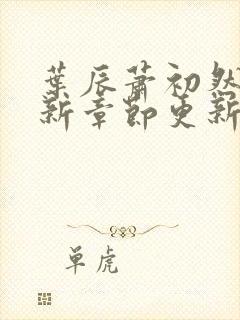 葉辰蕭初然
新章節更新
单虎